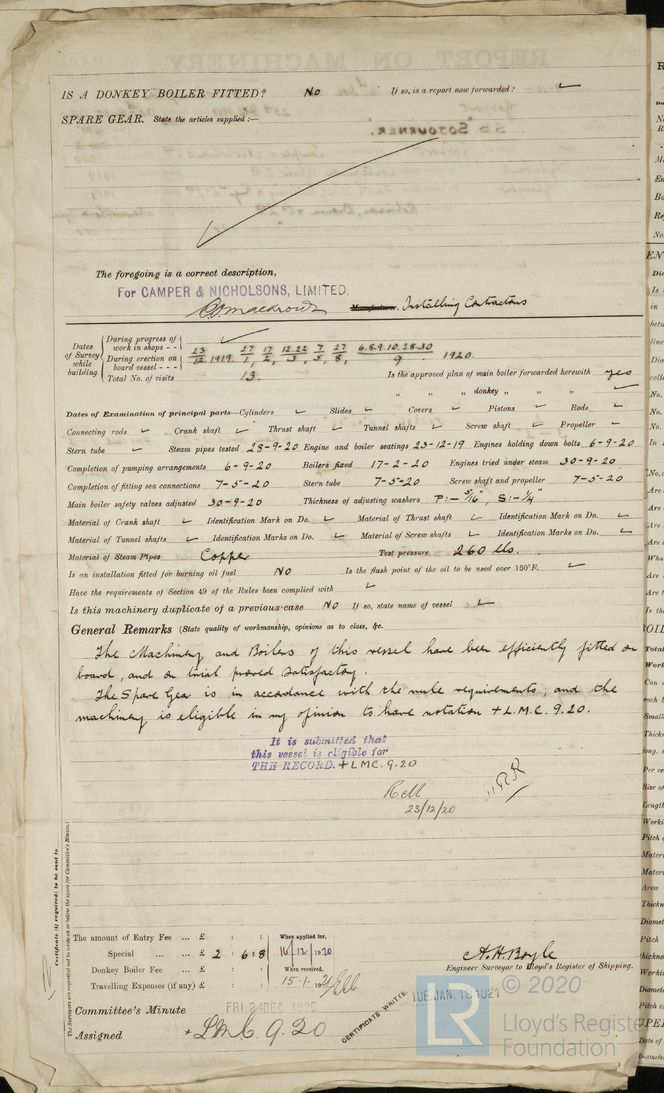 IS A DONKEY BOILER FITTED? No If so, is a report now forwarded? ✓
SPARE GEAR. State the articles supplied:—
SS SOJOURNER.
The foregoing is a correct description,
For CAMPER & NICHOLSONS, LIMITED.
Manufacturer. Installing Contractors
Dates of Survey while building
During progress of work in shops - -
During erection on board vessel - - -
Total No. of visits 13.
23/12.1919. 27/1, 17/2, 12.22/3, 7/5, 27/8, 6.8.9.10.28.30/9 1920.
Is the approved plan of main boiler forwarded herewith yes
" " donkey " " " ✓
Dates of Examination of principal parts—Cylinders ✓ Slides ✓ Covers ✓ Pistons ✓ Rods ✓
Connecting rods ✓ Crank shaft ✓ Thrust shaft ✓ Tunnel shafts ✓ Screw shaft ✓ Propeller ✓
Stern tube ✓ Steam pipes tested 28-9-20 Engine and boiler seatings 23-12-19 Engines holding down bolts 6-9-20
Completion of pumping arrangements 6-9-20 Boilers fixed 17-2-20 Engines tried under steam 30-9-20
Completion of fitting sea connections 7-5-20 Stern tube 7-5-20 Screw shaft and propeller 7-5-20
Main boiler safety valves adjusted 30-9-20 Thickness of adjusting washers P:— 5/16", S:— 1/4"
Material of Crank shaft ✓ Identification Mark on Do. ✓ Material of Thrust shaft ✓ Identification Mark on Do. ✓
Material of Tunnel shafts ✓ Identification Marks on Do. ✓ Material of Screw shafts ✓ Identification Marks on Do. ✓
Material of Steam Pipes Copper Test pressure 260 lbs.
Is an installation fitted for burning oil fuel NO Is the flash point of the oil to be used over 150°F. ✓
Have the requirements of Section 49 of the Rules been complied with ✓
Is this machinery duplicate of a previous case NO If so, state name of vessel ✓
General Remarks (State quality of workmanship, opinions as to class, &c.
The Machinery and Boilers of this vessel have been efficiently fitted on
board, and on trial proved satisfactory.
The Spare Gear is in accordance with the rule requirements, and the
machinery is eligible in my opinion to have notation + L.M.C. 9.20.
It is submitted that
this vessel is eligible for
THE RECORD. + LMC. 9.20
23/12/20
Certificate (if required) to be sent to
The Surveyors are requested not to write on or below the space for Committee's Minute.
The amount of Entry Fee ... £ : :
Special ... ... £ 2 : 6 : 8
Donkey Boiler Fee ... £ : :
Travelling Expenses (if any) £ : :
When applied for,
16/12/1920
When received,
15.1.1921
A. H. Boyle
Engineer Surveyor to Lloyd's Register of Shipping.
Committee's Minute FRI. 24 DEC. 1920 TUE. JAN. 18 1921
Assigned + LMC 9.20
CERTIFICATE WRITTEN
LR © 2020
Lloyd's Register
Foundation